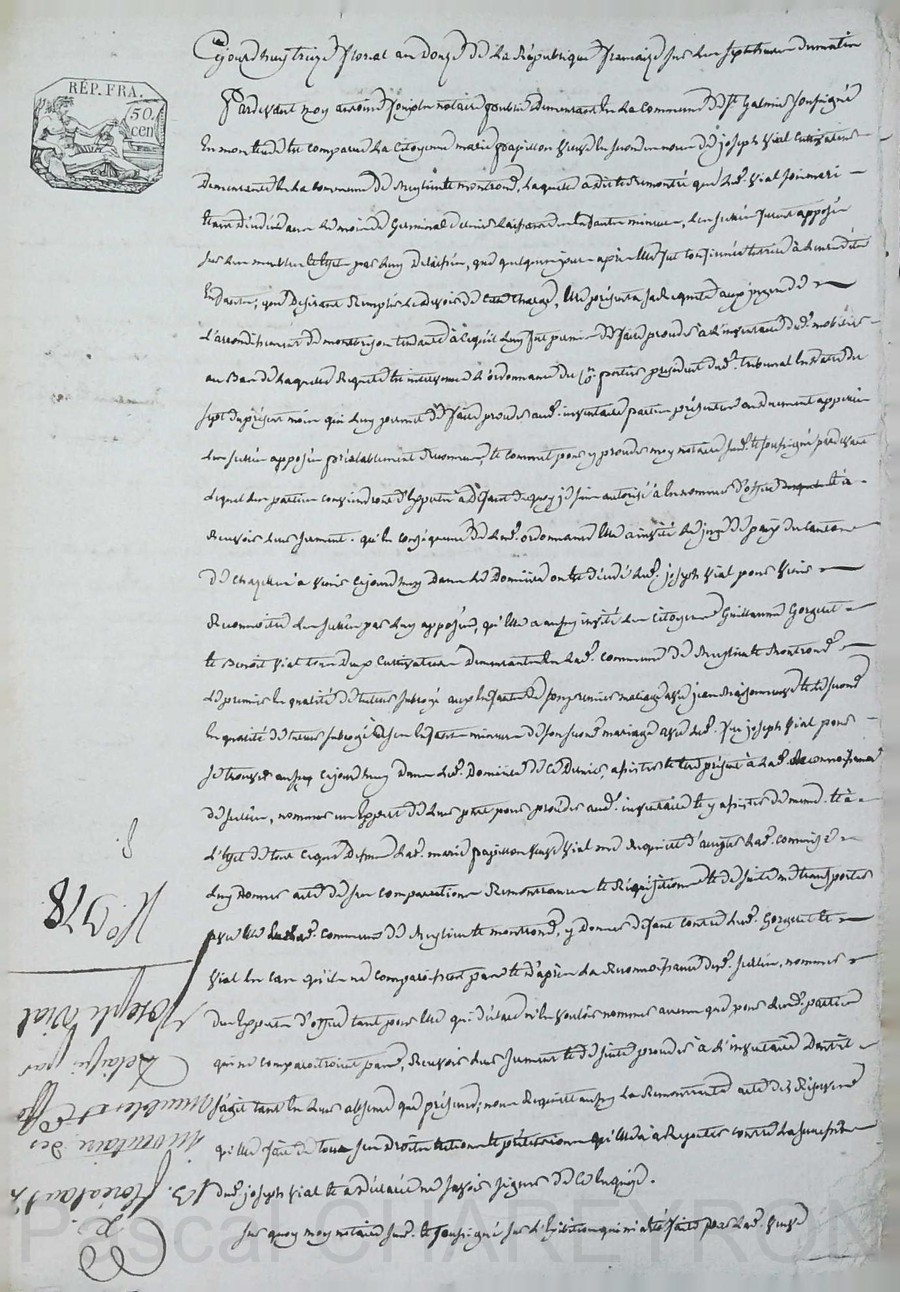 Cejourd'huy treize floreal an douze de la République francaise sur les sept heures du matin
RÉP. FRA.
50.
cen
Pardevant moy notaire public demeurant en la commune de St galmier soussigné
en mon etude est comparue la citoyenne marie papillon veuve en secondes noces de joseph vial cultivateur
demeurante en la commune de Meylieu et montrond, laquelle a dit et remontré que led. vial son mari
étant décédé dans le mois de Germinal dernier laissant des enfants mineurs, les scellés furent apposés
sur les meubles et effets par luy delaissés, que quelques jours après elle fut confirmée tutrice à desdits
enfants, que desirant remplir les devoirs de cette charge, elle présenta sa Requete aux juges de
l'arrondissement de montbrison tendante à ce qu'il luy fut permis de faire proceder à l'inventaire dud. mobilier
au Bas de laquelle Requete est intervenue l'ordonnance du Cn portier president dud. tribunal en date du
sept du présent mois qui luy permet de faire proceder aud. inventaire parties présentes ou duement appelées
les scellés apposés préalablement Reconnus, et commet pour y proceder moy notaire sud. et soussigné pardevant
lequel les parties conviendront d'Experts à defaut de quoy je suis autorisé à en nommer d'office et à
Recevoir leur serment. qu'en conséquence de lad. ordonnance elle a invité le juge de paix du canton
de Chazelles à venir cejourd'huy dans le Domicile ou est décédé led. joseph vial pour venir
Reconnoitre les scellés par luy apposés, qu'elle a aussy invité les citoyens Guillaume Gorgeret
et Benoit vial tous deux cultivateurs demeurants en lad. commune de Meylieu et Montrond
le premier en qualité de tuteur subrogé aux enfants de son premier mariage avec jean et le second
en qualité de tuteur subrogé de ses enfants mineurs de son second mariage avec led. feu joseph vial pour
se trouver aussy cejourd'huy dans led. Domicile de ce dernier assister et etre présent à lad. Reconnoissance
de scellés, nommer un Expert de leur part pour proceder aud. inventaire et y assister de meme. et à
l'effet de tout ce que dessus lad. marie papillon veuve vial me Requiert
luy donner acte de ses comparution Remontrances et Réquisitions et de suite me transporter
avec elle en lad. commune de Meylieu et montrond, y donner défaut contre led. Gorgeret et
vial en cas qu'ils ne comparoissent pas et d'après la Reconnoissance desd. scellés, nommer
des Experts d'office tant pour elle qui déclare n'en vouloir nommer aucun que pour lesd. parties
qui ne comparoitroient pas, Recevoir leur serment et de suite proceder à l'inventaire dont il
s'agit tant en leur absence que présence, nous Requiert aussy la Remontrante acte des Réserves
qu'elle fait de tous ses droits actions et prétentions qu'elle a à Repeter contre la succession
dud. joseph vial et a déclaré ne savoir signer de ce Enquise.
Sur quoy moy notaire sud. et soussigné sur l'Exibition qui m'a été faite par lad. veuve
13. floréal an 12
inventaire des
meubles et effets
delaissés par
Joseph Vial
N° 978
Pascal CHAREYRON